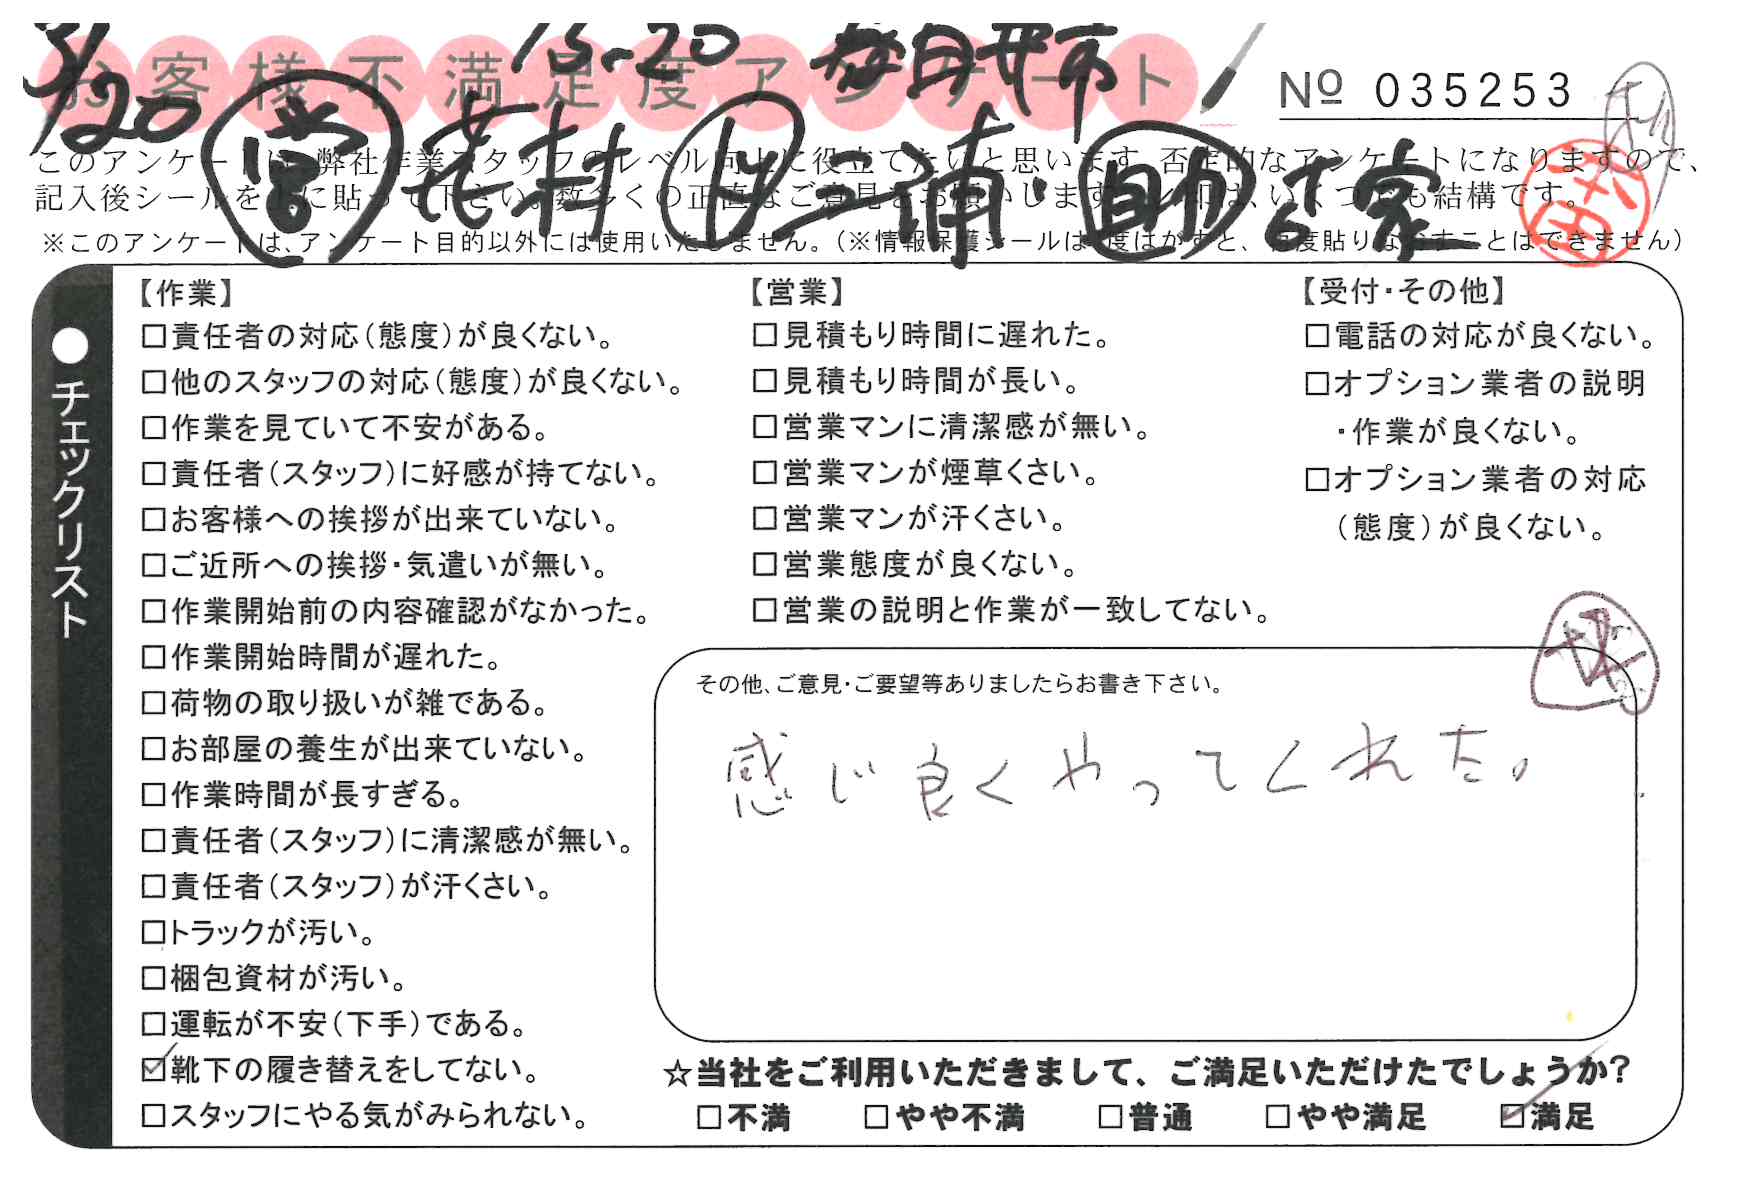 3/20 15-20 廿日市
お客様不満足度アンケート
No 035253
営 花村 作 三浦・助 宗
このアンケートは、弊社作業スタッフのレベル向上に役立てたいと思います。否定的なアンケートになりますので、
記入後シールを上に貼って下さい。数多くの正直なご意見をお願いします。レ印は、いくつでも結構です。
※このアンケートは、アンケート目的以外には使用いたしません。(※情報保護シールは1度はがすと、再度貼りなおすことはできません)
●チェックリスト
【作業】
□責任者の対応(態度)が良くない。
□他のスタッフの対応(態度)が良くない。
□作業を見ていて不安がある。
□責任者(スタッフ)に好感が持てない。
□お客様への挨拶が出来ていない。
□ご近所への挨拶・気遣いが無い。
□作業開始前の内容確認がなかった。
□作業開始時間が遅れた。
□荷物の取り扱いが雑である。
□お部屋の養生が出来ていない。
□作業時間が長すぎる。
□責任者(スタッフ)に清潔感が無い。
□責任者(スタッフ)が汗くさい。
□トラックが汚い。
□梱包資材が汚い。
□運転が不安(下手)である。
☑靴下の履き替えをしてない。
□スタッフにやる気がみられない。
【営業】
□見積もり時間に遅れた。
□見積もり時間が長い。
□営業マンに清潔感が無い。
□営業マンが煙草くさい。
□営業マンが汗くさい。
□営業態度が良くない。
□営業の説明と作業が一致してない。
【受付・その他】
□電話の対応が良くない。
□オプション業者の説明
・作業が良くない。
□オプション業者の対応
(態度)が良くない。
その他、ご意見・ご要望等ありましたらお書き下さい。
感じ良くやってくれた。
☆当社をご利用いただきまして、ご満足いただけたでしょうか?
□不満 □やや不満 □普通 □やや満足 ☑満足